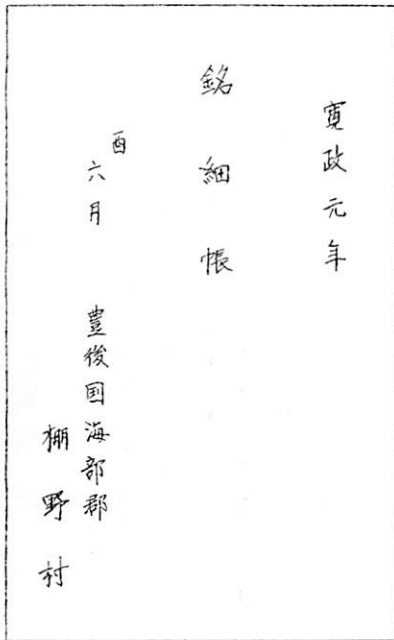 寛政元年
銘細帳
酉
六月
豊後国海部郡
棚野村